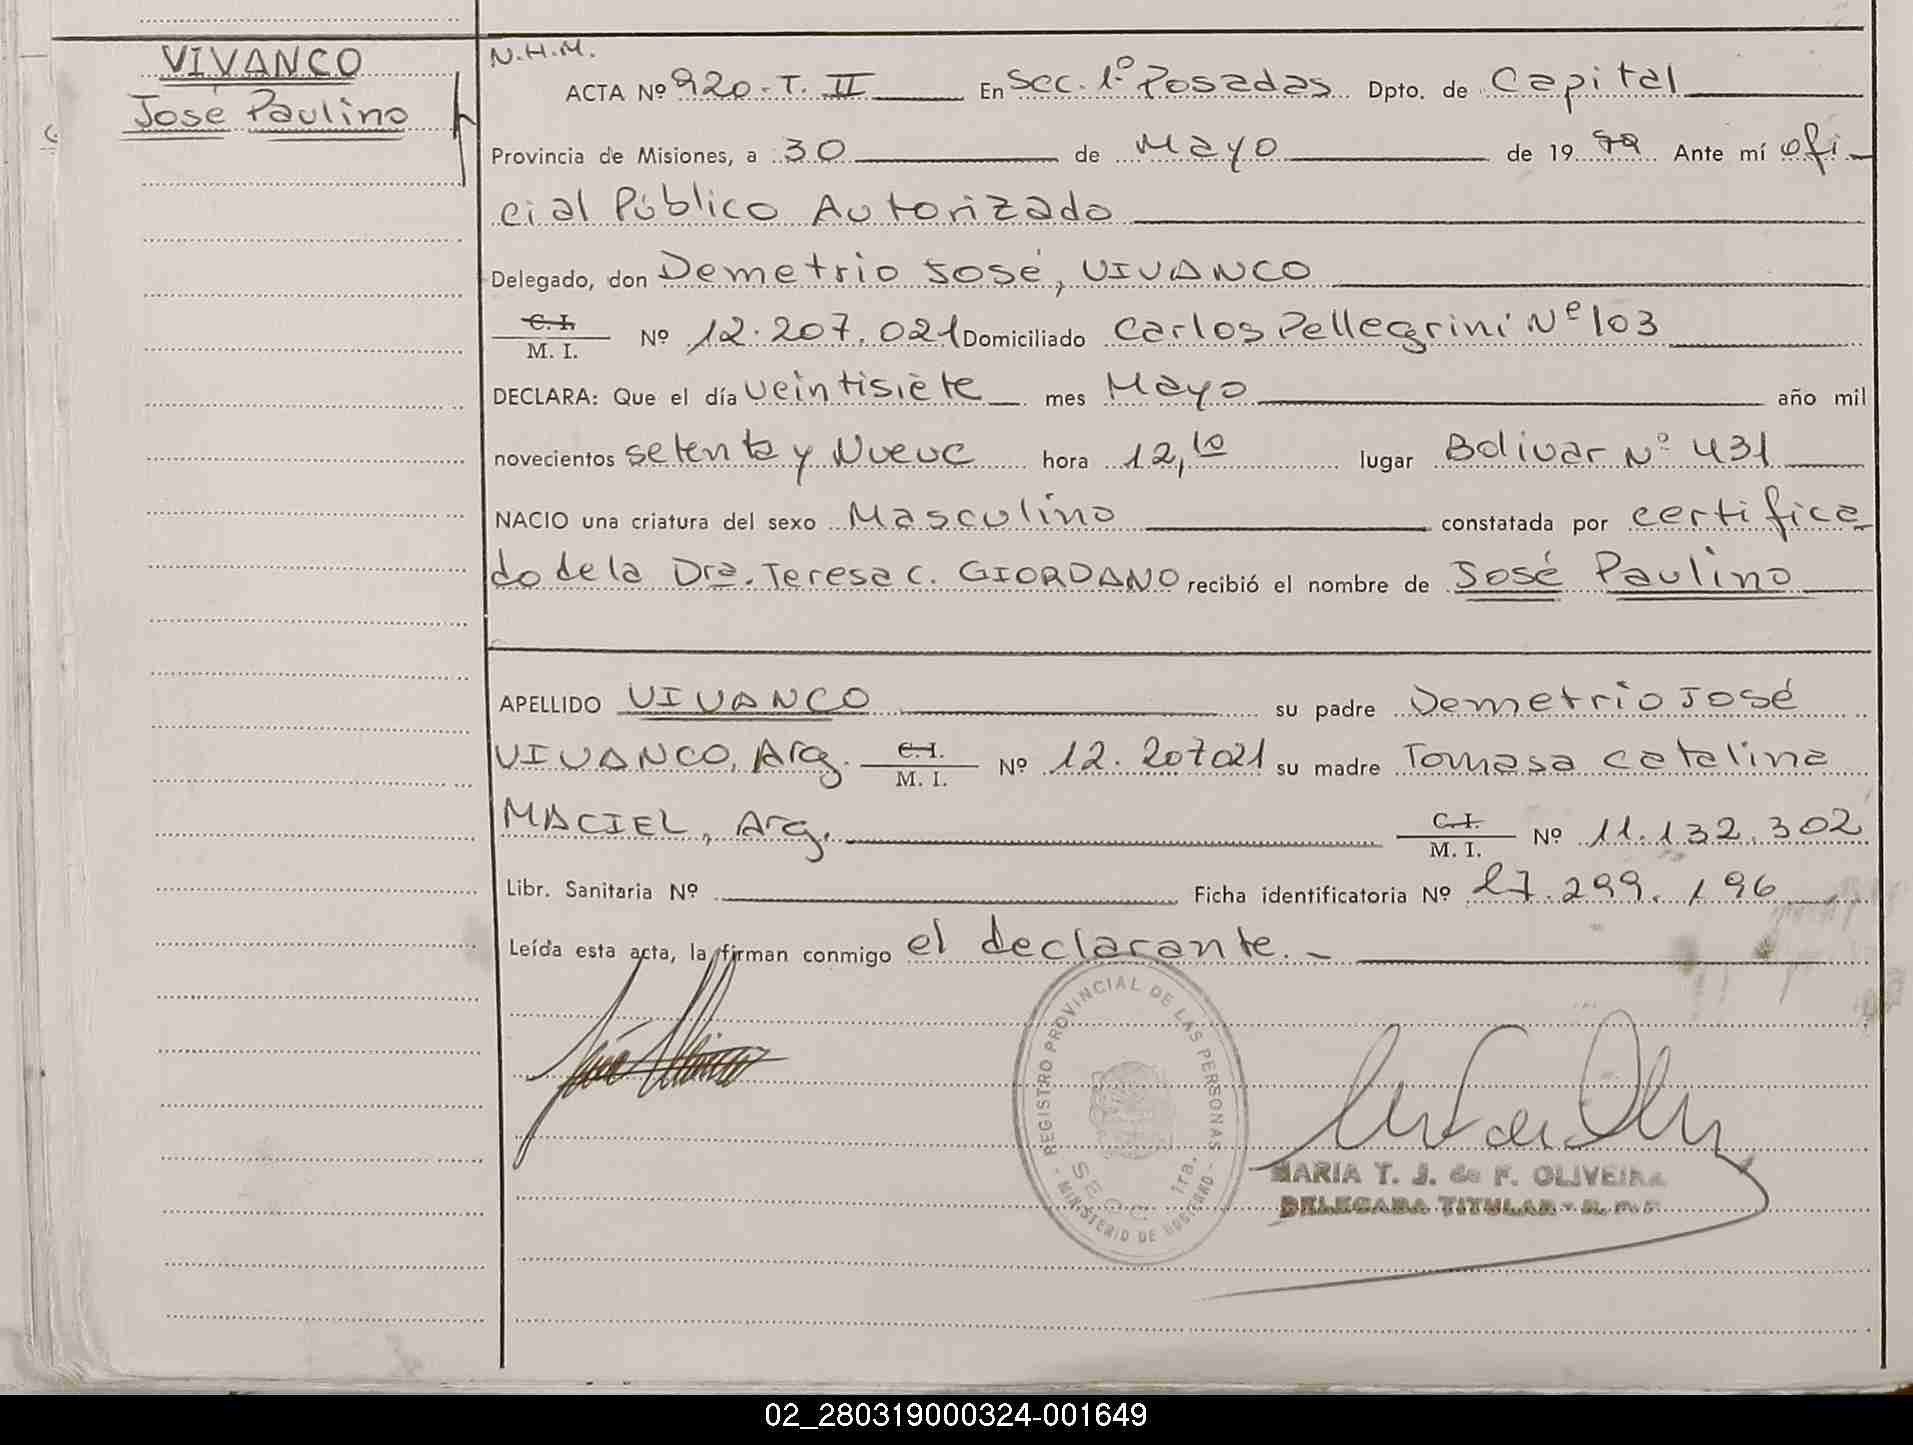 VIVANCO
José Paulino
N.H.M.
ACTA Nº 920-T. II En Sec. 1º Posadas Dpto. de Capital
Provincia de Misiones, a 30 de Mayo de 19 79 Ante mí ofi-
cial Público Autorizado
Delegado, don Demetrio José, VIVANCO
C. I.
M. I. Nº 12.207.021 Domiciliado Carlos Pellegrini Nº 103
DECLARA: Que el día veintisiete mes Mayo año mil
novecientos setenta y Nueve hora 12,10 lugar Bolivar Nº 431
NACIO una criatura del sexo Masculino constatada por certifica-
do de la Dra. Teresa C. GIORDANO recibió el nombre de José Paulino
APELLIDO VIVANCO su padre Demetrio José
VIVANCO, Arg. C. I. M. I. Nº 12.207021 su madre Tomasa Catalina
MACIEL, Arg. C. I. M. I. Nº 11.132.302
Libr. Sanitaria Nº Ficha identificatoria Nº 27.299.196
Leída esta acta, la firman conmigo el declarante.-
REGISTRO PROVINCIAL DE LAS PERSONAS
SECC. 1ra.
MINISTERIO DE GOBIERNO
MARIA T. J. de F. OLIVEIRA
DELEGADA TITULAR - R. P. P.
02_280319000324-001649